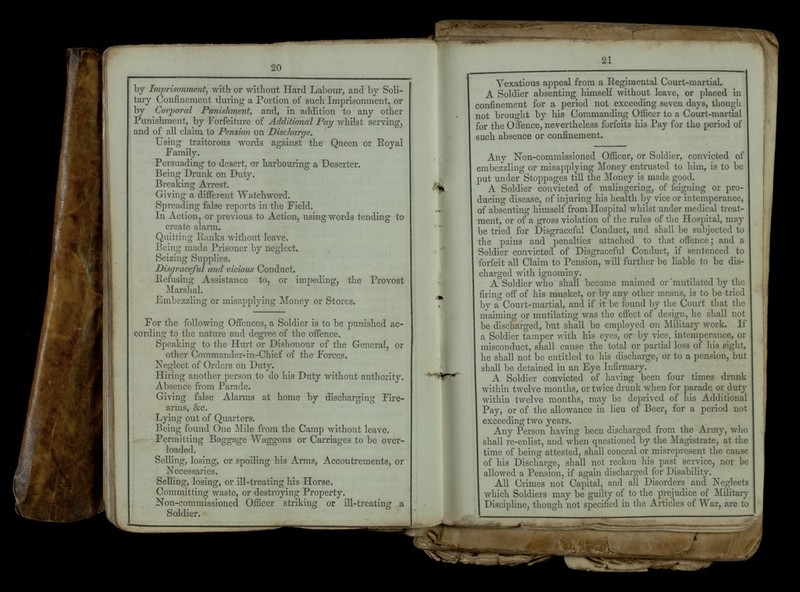 20
by Imprisonment, with or without Hard Labour, and by Soli-
tary Confinement during a Portion of such Imprisonment, or
by Corporal Punishment, and, in addition to any other
Punishment, by Forfeiture of Additional Pay whilst serving,
and of all claim to Pension on Discharge.
Using traitorous words against the Queen or Royal
Family.
Persuading to desert, or harbouring a Deserter.
Being Drunk on Duty.
Breaking Arrest.
Giving a different Watchword.
Spreading false reports in the Field.
In Action, or previous to Action, using words tending to
create alarm.
Quitting Ranks without leave.
Being made Prisoner by neglect.
Seizing Supplies.
Disgraceful and vicious Conduct.
Refusing Assistance to, or impeding, the Provost
Marshal.
Embezzling or misapplying Money or Stores.
For the following Offences, a Soldier is to be punished ac-
cording to the nature and degree of the offence.
Speaking to the Hurt or Dishonour of the General, or
other Commander-in-Chief of the Forces.
Neglect of Orders on Duty.
Hiring another person to do his Duty without authority.
Absence from Parade.
Giving false Alarms at home by discharging Fire-
arms, &c.
Lying out of Quarters.
Being found One Mile from the Camp without leave.
Permitting Baggage Waggons or Carriages to be over-
loaded.
Selling, losing, or spoiling his Arms, Accoutrements, or
Necessaries.
Selling, losing, or ill-treating his Horse.
Committing waste, or destroying Property.
Non-commissioned Officer striking or ill-treating a
Soldier.
21
Vexatious appeal from a Regimental Court-martial.
A Soldier absenting himself without leave, or placed in
confinement for a period not exceeding seven days, though
not brought by his Commanding Officer to a Court-martial
for the Offence, nevertheless forfeits his Pay for the period of
such absence or confinement.
Any Non-commissioned Officer, or Soldier, convicted of
embezzling or misapplying Money entrusted to him, is to be
put under Stoppages till the Money is made good.
A Soldier convicted of malingering, of feigning or pro-
ducing disease, of injuring his health by vice or intemperance,
of absenting himself from Hospital whilst under medical treat-
ment, or of a gross violation of the rules of the Hospital, may
be tried for Disgraceful Conduct, and shall be subjected to
the pains and penalties attached to that offence; and a
Soldier convicted of Disgraceful Conduct, if sentenced to
forfeit all Claim to Pension, will further be liable to be dis-
charged with ignominy.
A Soldier who shall become maimed or mutilated by the
firing off of his musket, or by any other means, is to be tried
by a Court-martial, and if it be found by the Court that the
maiming or mutilating was the effect of design, he shall not
be discharged, but shall be employed on Military work. If
a Soldier tamper with his eyes, or by vice, intemperance, or
misconduct, shall cause the total or partial loss of his sight,
he shall not be entitled to his discharge, or to a pension, but
shall be detained in an Eye Infirmary.
A Soldier convicted of having been four times drunk
within twelve months, or twice drunk when for parade or duty
within twelve months, may be deprived of his Additional
Pay, or of the allowance in lieu of Beer, for a period not
exceeding two years.
Any Person having been discharged from the Army, who
shall re-enlist, and when questioned by the Magistrate, at the
time of being attested, shall conceal or misrepresent the cause
of his Discharge, shall not reckon his past service, nor be
allowed a Pension, if again discharged for Disability.
All Crimes not Capital, and all Disorders and Neglects
which Soldiers may be guilty of to the prejudice of Military
Discipline, though not specified in the Articles of War, are to